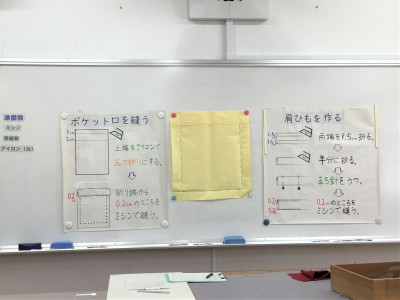 準備物
ミシン
アイロン(台)
ポケット口を縫う
1cm
2cm
上端をアイロンで
三つ折りにする。
0.2
折り端から
0.2cmのところを
ミシンで縫う。
肩ひもを作る
1.5
1.5
両端を1.5cm折る。
半分に折る。
まち針をうつ。
0.2
0.2
0.2cmのところを
ミシンで縫う。